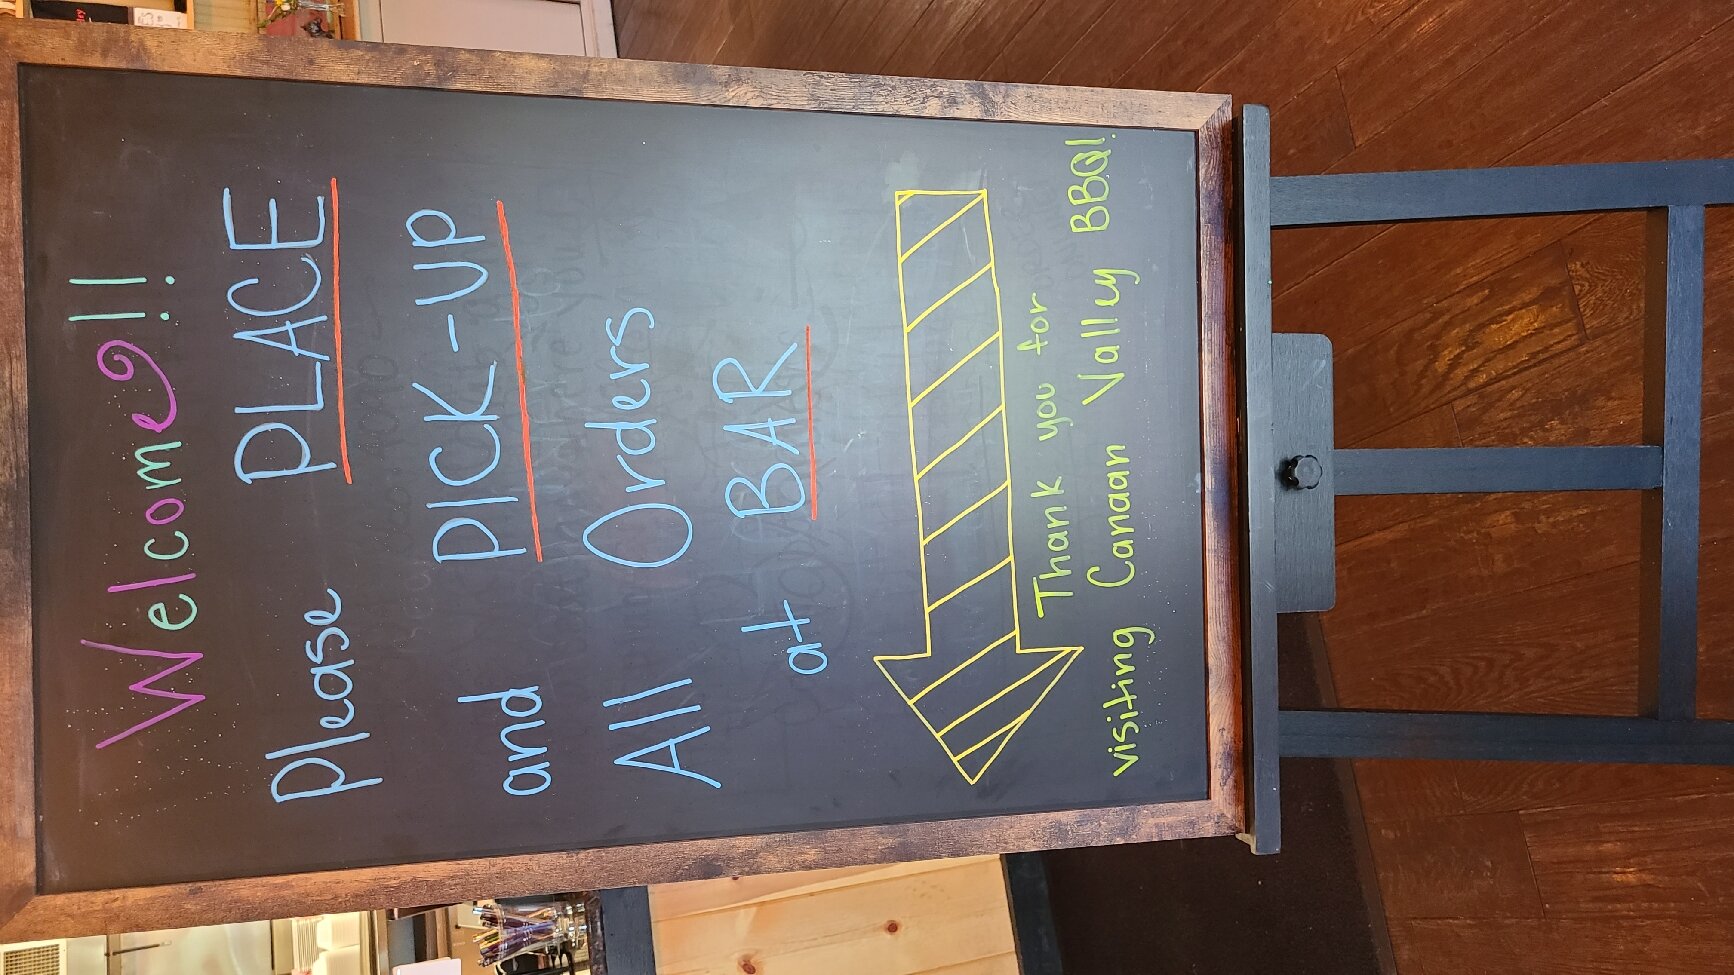 Welcome!!
please PLACE
and PICK-UP
All Orders
at BAR
Thank you for
visiting Canaan Valley BBQ!